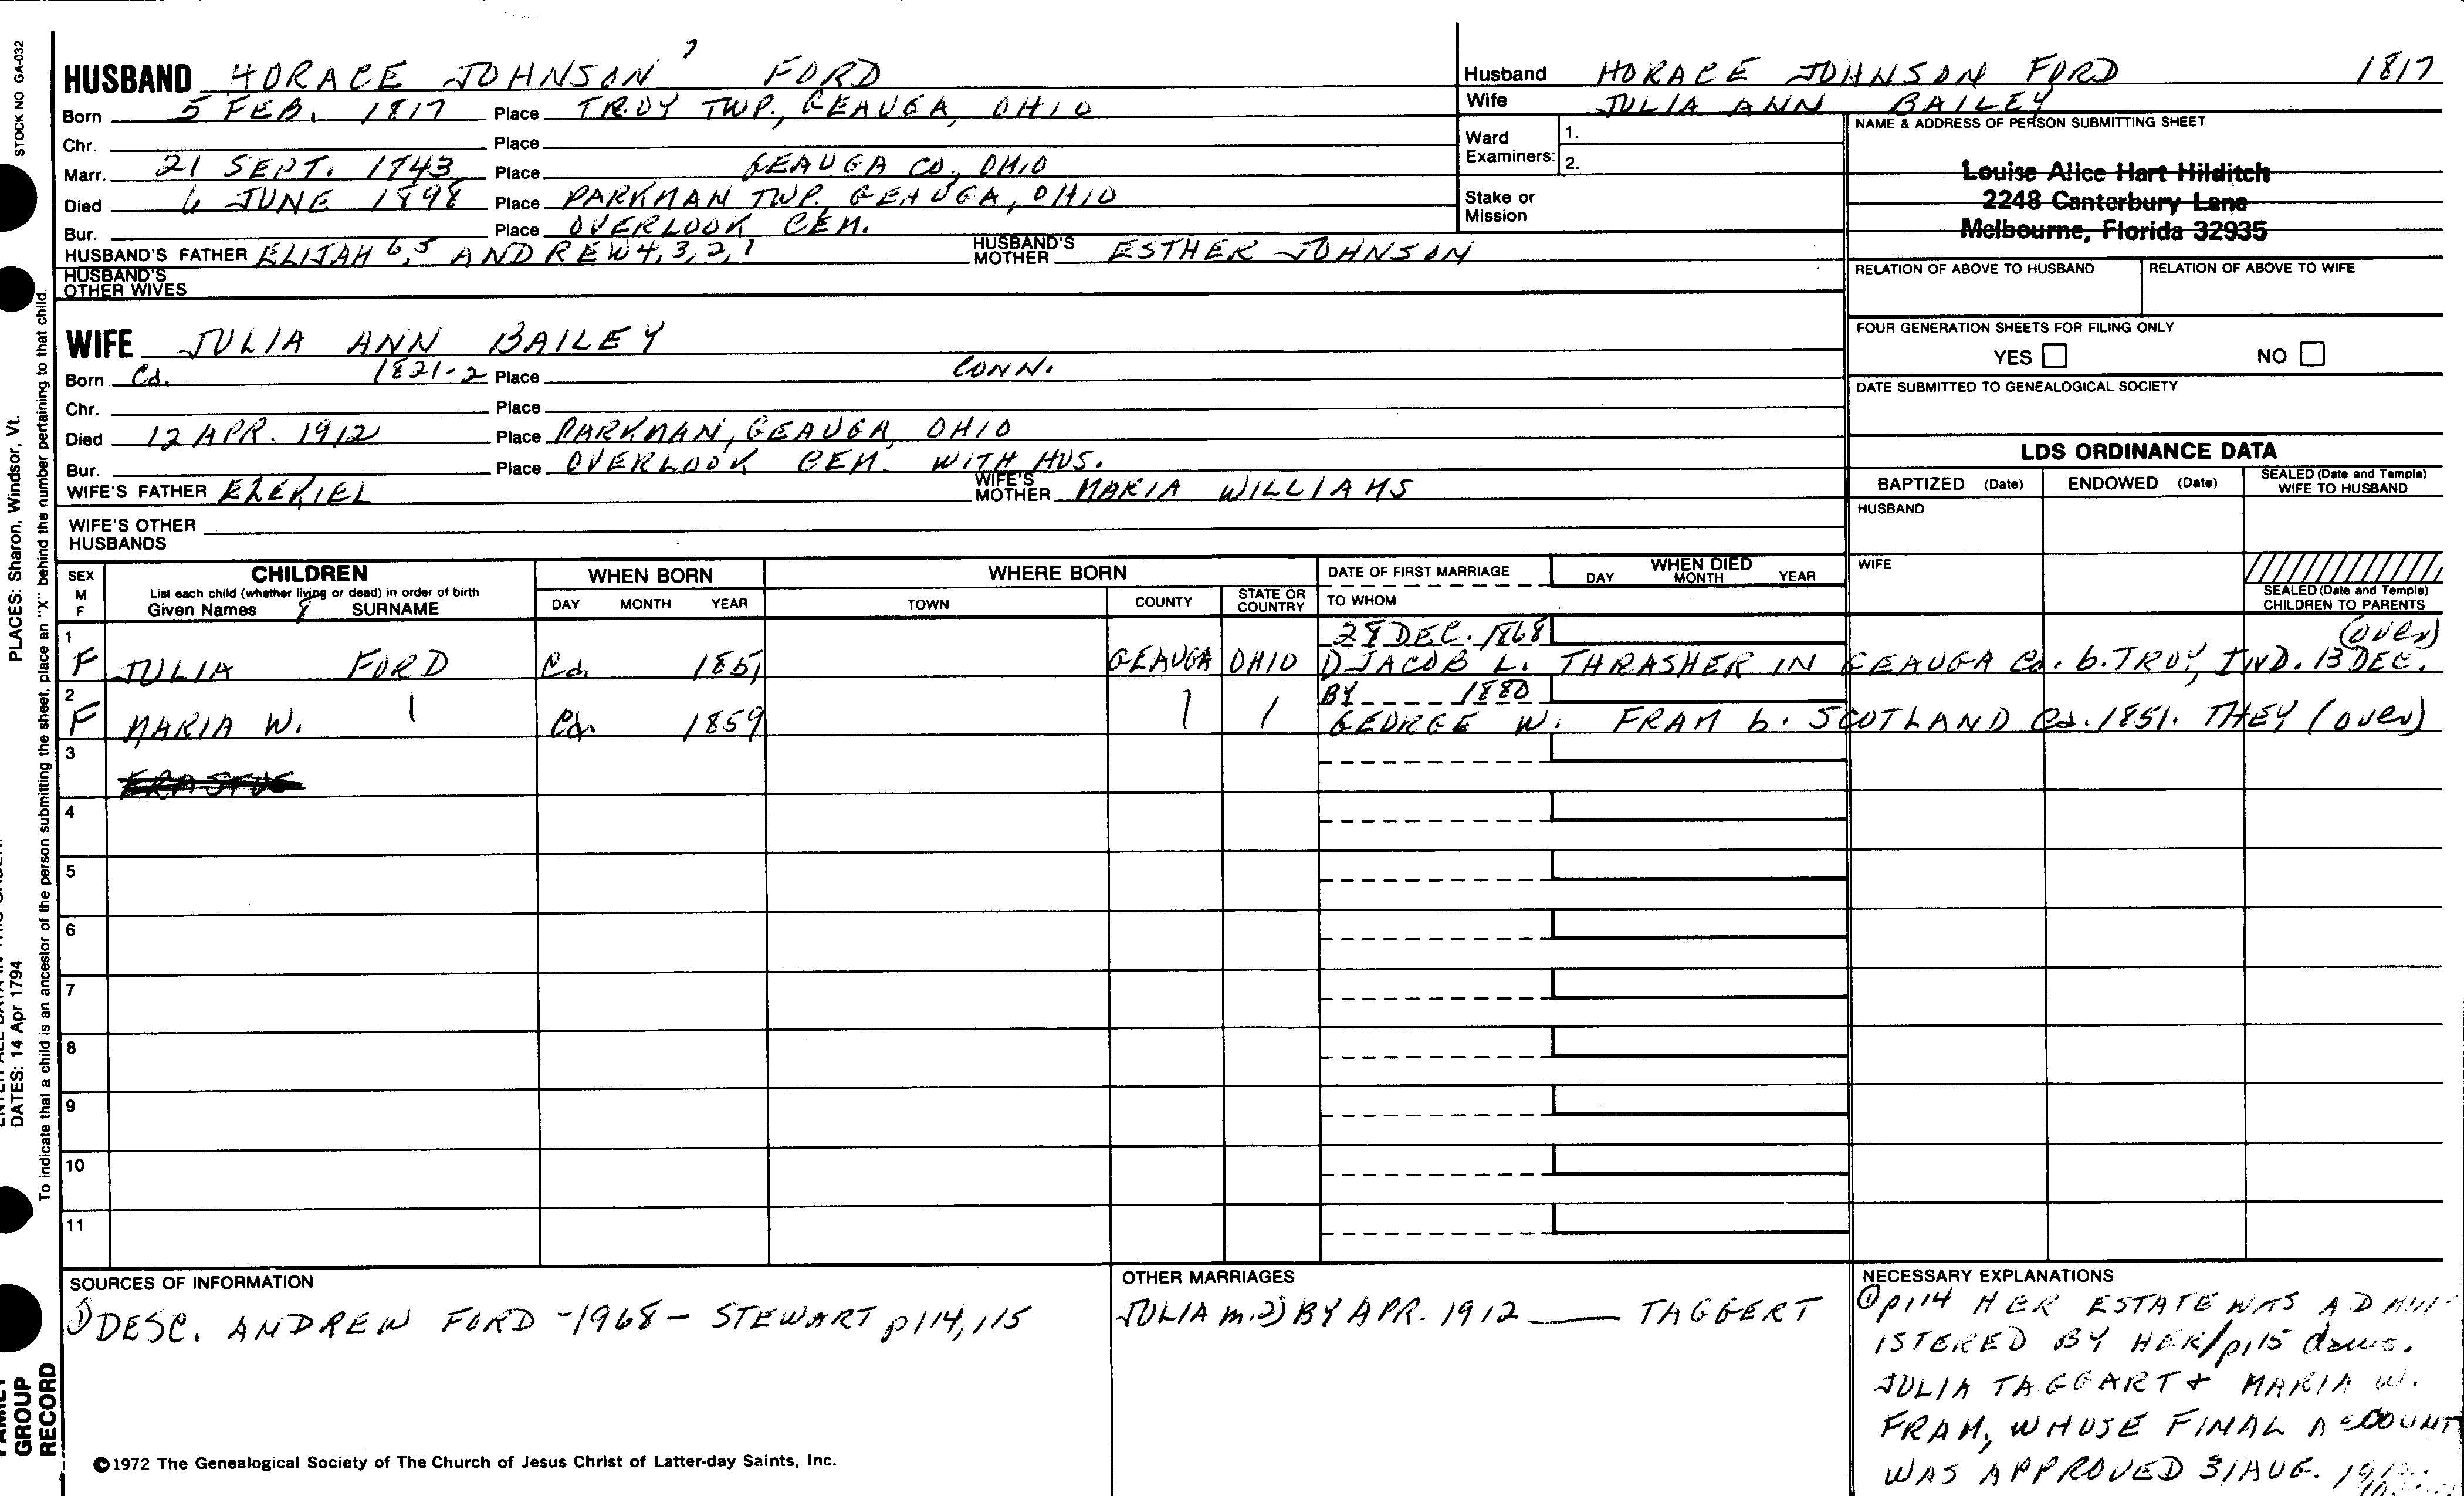 STOCK NO GA-032
HUSBAND HORACE JOHNSON 7 FORD
Born 5 FEB. 1817 Place TROY TWP., GEAUGA, OHIO
Chr. Place
Marr. 21 SEPT. 1843 Place GEAUGA CO., OHIO
Died 6 JUNE 1898 Place PARKMAN TWP. GEAUGA, OHIO
Bur. Place OVERLOOK CEM.
HUSBAND'S FATHER ELIJAH 6,5 ANDREW 4,3,2,1 HUSBAND'S MOTHER ESTHER JOHNSON
HUSBAND'S OTHER WIVES
Husband HORACE JOHNSON FORD 1817
Wife JULIA ANN BAILEY
Ward Examiners: 1.
2.
Stake or Mission
NAME & ADDRESS OF PERSON SUBMITTING SHEET
Louise Alice Hart Hilditch
2248 Canterbury Lane
Melbourne, Florida 32935
RELATION OF ABOVE TO HUSBAND RELATION OF ABOVE TO WIFE
FOUR GENERATION SHEETS FOR FILING ONLY
YES NO
DATE SUBMITTED TO GENEALOGICAL SOCIETY
WIFE JULIA ANN BAILEY
Born Ca. 1821-2 Place CONN.
Chr. Place
Died 12 APR. 1912 Place PARKMAN, GEAUGA, OHIO
Bur. Place OVERLOOK CEM. WITH HUS.
WIFE'S FATHER EZEKIEL WIFE'S MOTHER MARIA WILLIAMS
WIFE'S OTHER HUSBANDS
LDS ORDINANCE DATA
BAPTIZED (Date) ENDOWED (Date) SEALED (Date and Temple) WIFE TO HUSBAND
HUSBAND
WIFE
SEALED (Date and Temple) CHILDREN TO PARENTS
SEX M F
CHILDREN
List each child (whether living or dead) in order of birth
Given Names 8 SURNAME
WHEN BORN
DAY MONTH YEAR
WHERE BORN
TOWN COUNTY STATE OR COUNTRY
DATE OF FIRST MARRIAGE
TO WHOM
WHEN DIED
DAY MONTH YEAR
28 DEC. 1868 (over)
1 F JULIA FORD Ca. 1851 GEAUGA OHIO JACOB L. THRASHER IN GEAUGA Co. b. TROY, IND. 13 DEC.
BY 1880
2 F MARIA W. Ca. 1859 GEORGE W. FRAM b. SCOTLAND Ca. 1851. THEY (over)
3 ERASTUS
4
5
6
7
8
9
10
11
SOURCES OF INFORMATION
① DESC. ANDREW FORD -1968- STEWART p114, 115
OTHER MARRIAGES
JULIA m. 2) BY APR. 1912 ___ TAGGERT
NECESSARY EXPLANATIONS
① p114 HER ESTATE WAS ADMIN-
ISTERED BY HER/p115 daus.
JULIA TAGGART + MARIA W.
FRAM, WHOSE FINAL ACCOUNT
WAS APPROVED 31 AUG.
©1972 The Genealogical Society of The Church of Jesus Christ of Latter-day Saints, Inc.
PLACES: Sharon, Windsor, Vt.
DATES: 14 Apr 1794
To indicate that a child is an ancestor of the person submitting the sheet, place an "X" behind the number pertaining to that child.
GROUP
RECORD